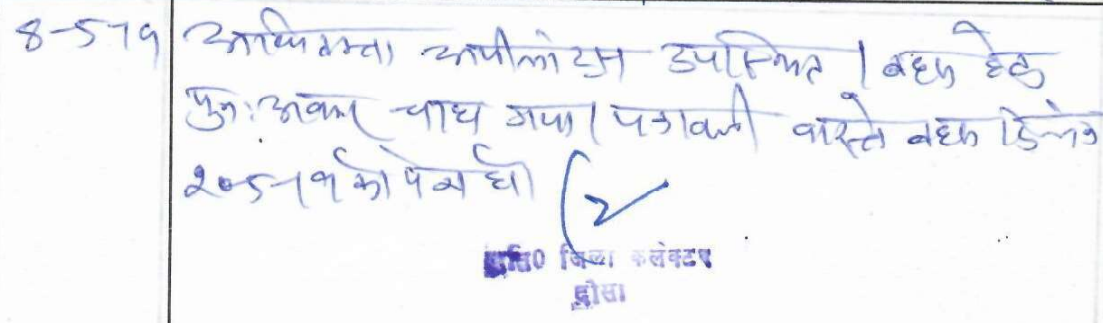 8-5-19 अधिवक्ता अपीलांट्स उपस्थित। बहस हेतु
पुनः अवसर चाहा गया। पत्रावली वास्ते बहस दिनांक
20-5-19 को पेश हो।
अति0 जिला कलेक्टर
दौसा